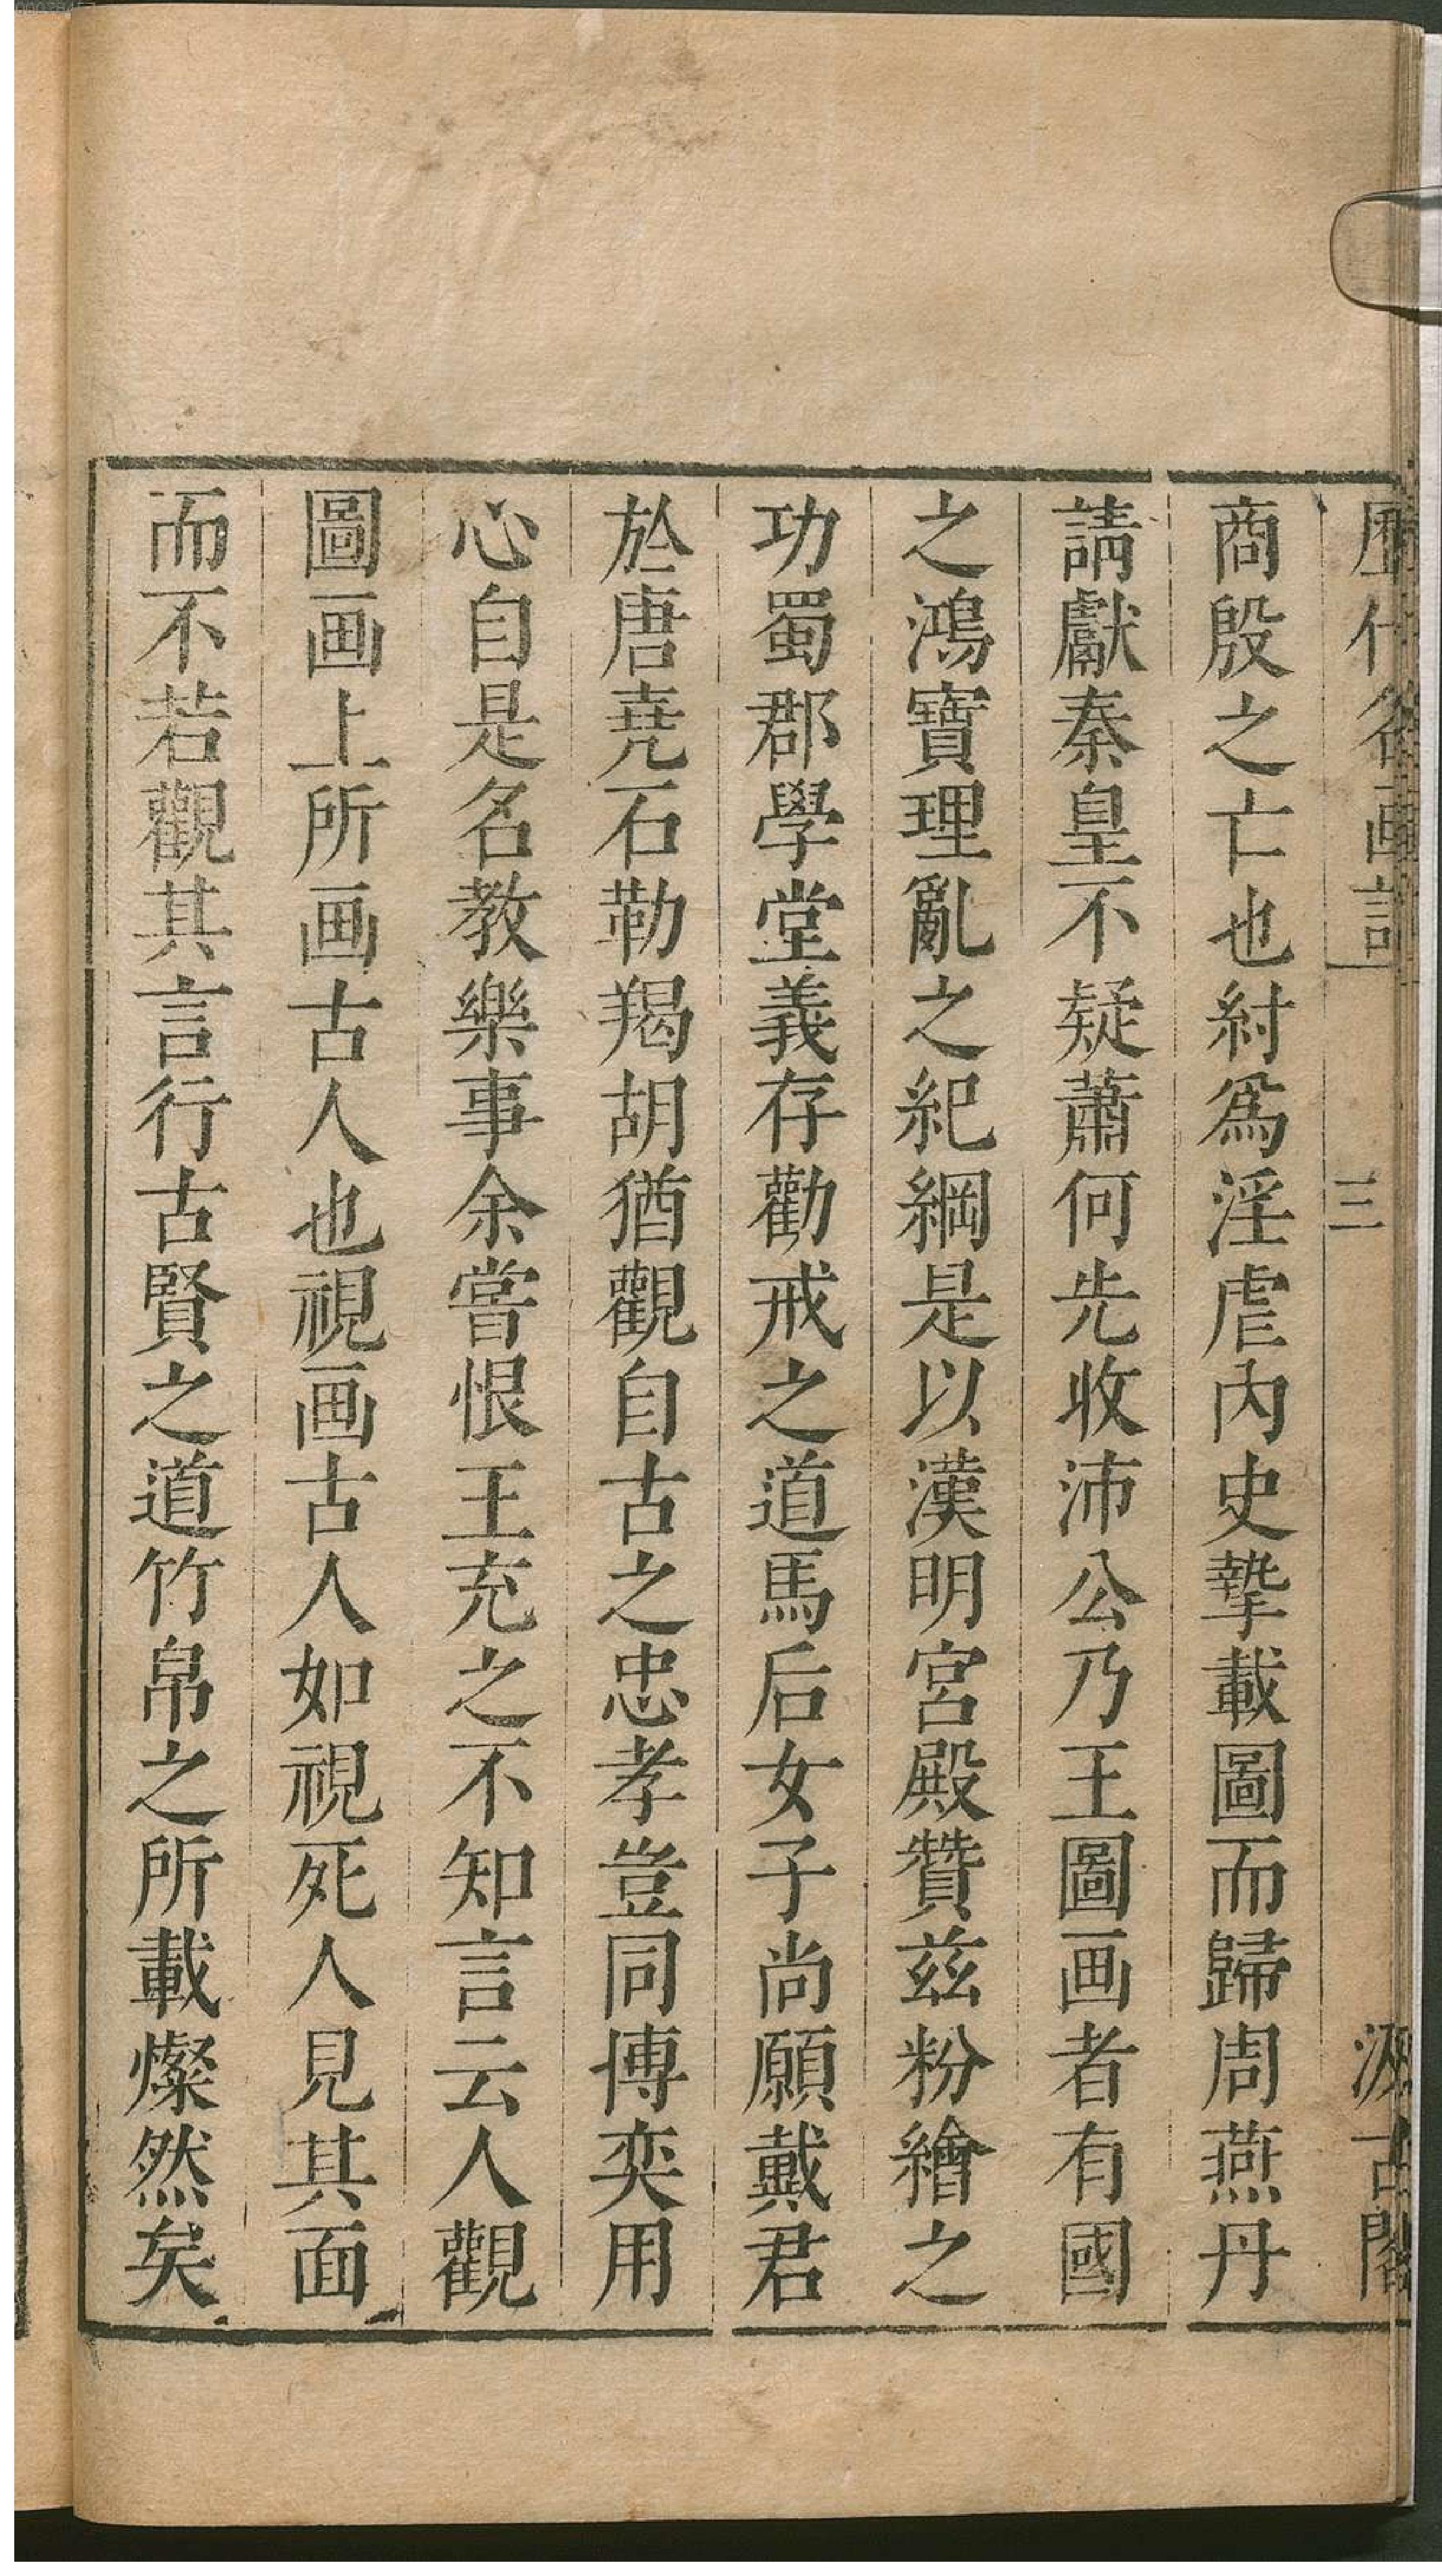 歷代名画記
三
汲古閣
商殷之亡也紂爲淫虐內史摯載圖而歸周燕丹
請獻秦皇不疑蕭何先收沛公乃王圖画者有國
之鴻寶理亂之紀綱是以漢明宮殿贊茲粉繪之
功蜀郡學堂義存勸戒之道馬后女子尚願戴君
於唐堯石勒羯胡猶觀自古之忠孝豈同博奕用
心自是名教樂事余嘗恨王充之不知言云人觀
圖画上所画古人也視画古人如視死人見其面
而不若觀其言行古賢之道竹帛之所載燦然矣